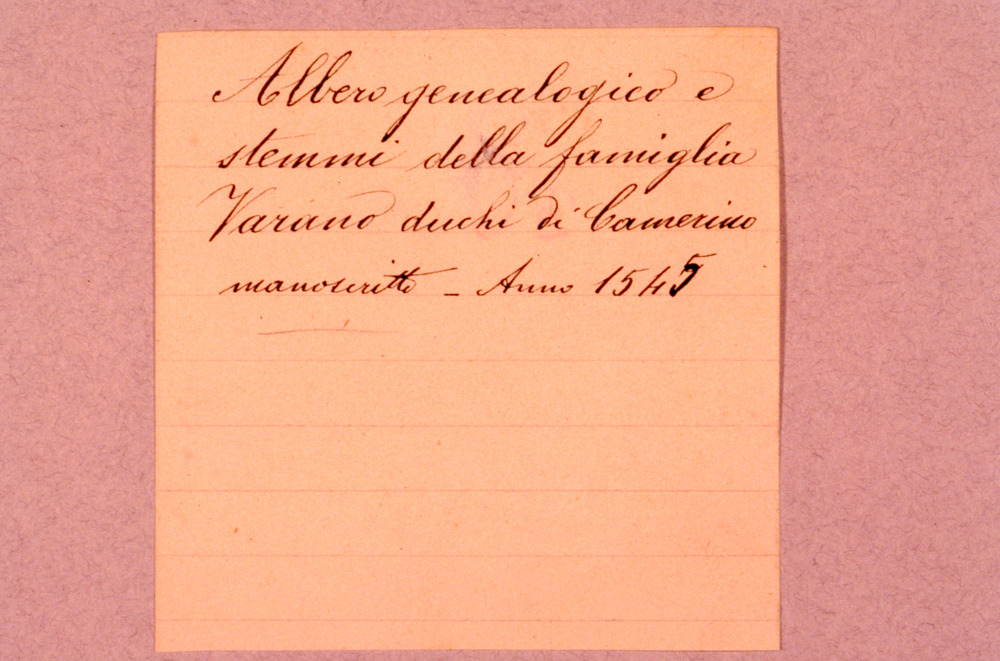 Albero genealogico e
stemmi della famiglia
Varano duchi di Camerino
manoscritto - Anno 1545